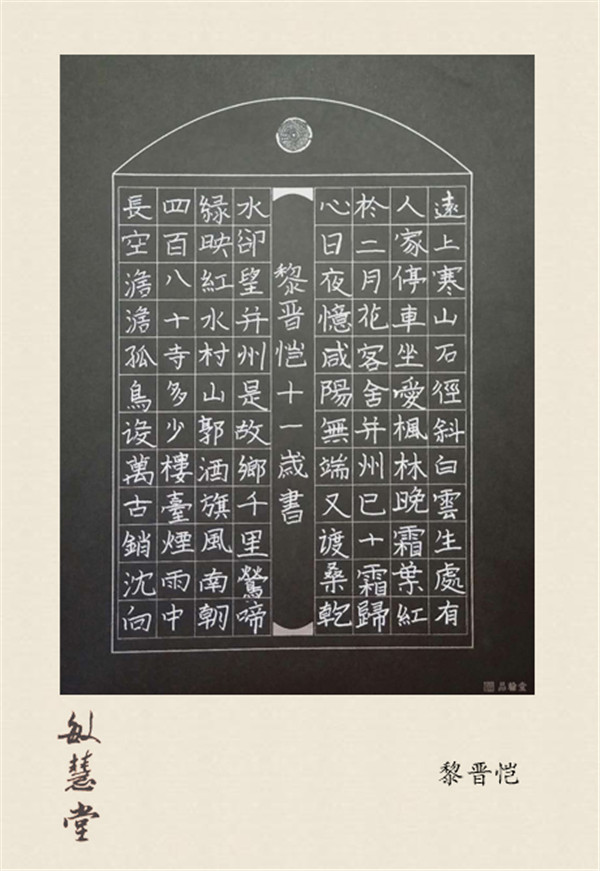 遠上寒山石徑斜白雲生處有
人家停車坐愛楓林晚霜葉紅
於二月花客舍并州已十霜歸
心日夜憶咸陽無端又渡桑乾
黎晋恺十一歲書
水卻望并州是故鄉千里鶯啼
緑映紅水村山郭酒旗風南朝
四百八十寺多少樓臺煙雨中
長空澹澹孤鳥没萬古銷沈向
敏慧堂
黎晋恺